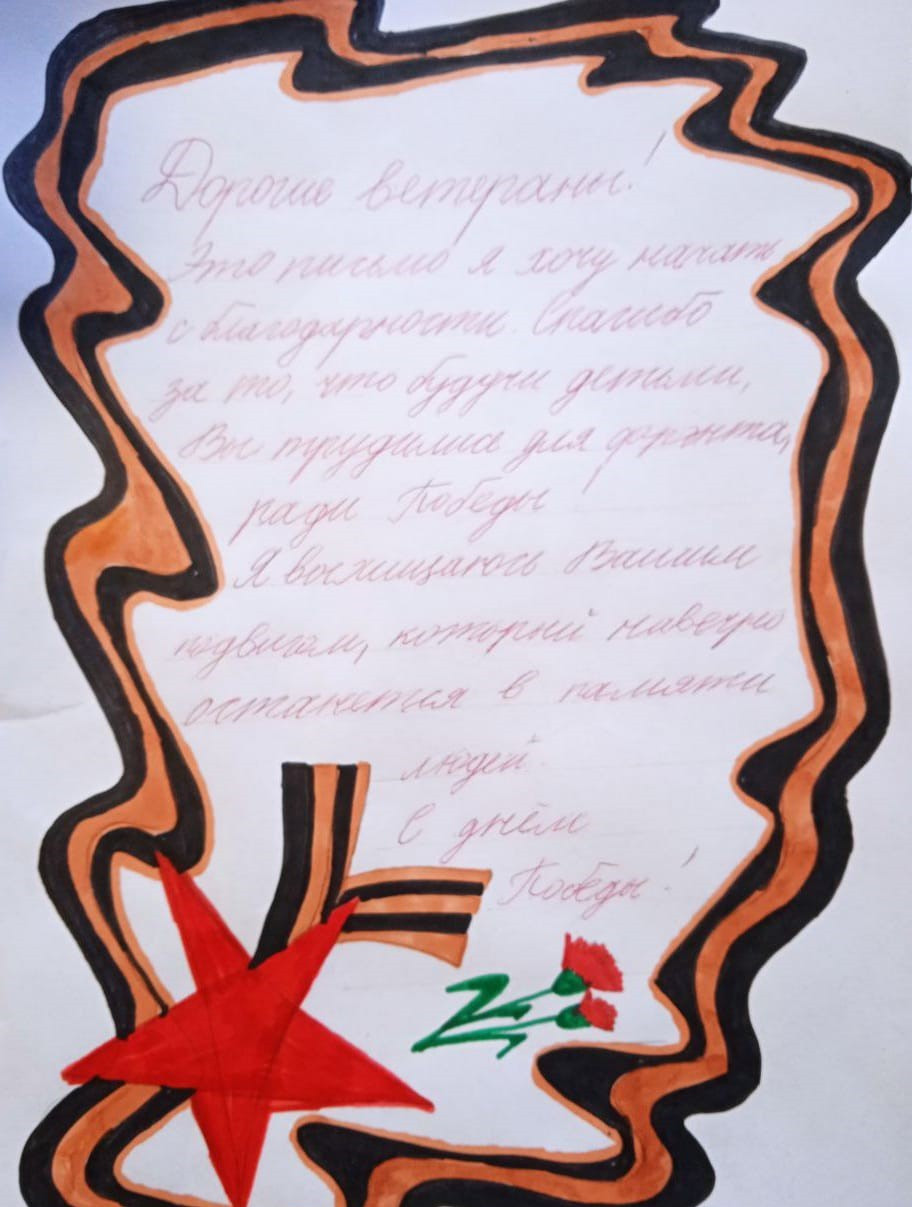 Дорогие ветераны!
Это письмо я хочу начать
с благодарности. Спасибо
за то, что будучи детьми,
Вы трудились для фронта,
ради Победы
Я восхищаюсь Вашим
подвигом, который навечно
останется в памяти
людей.
С днём
Победы!